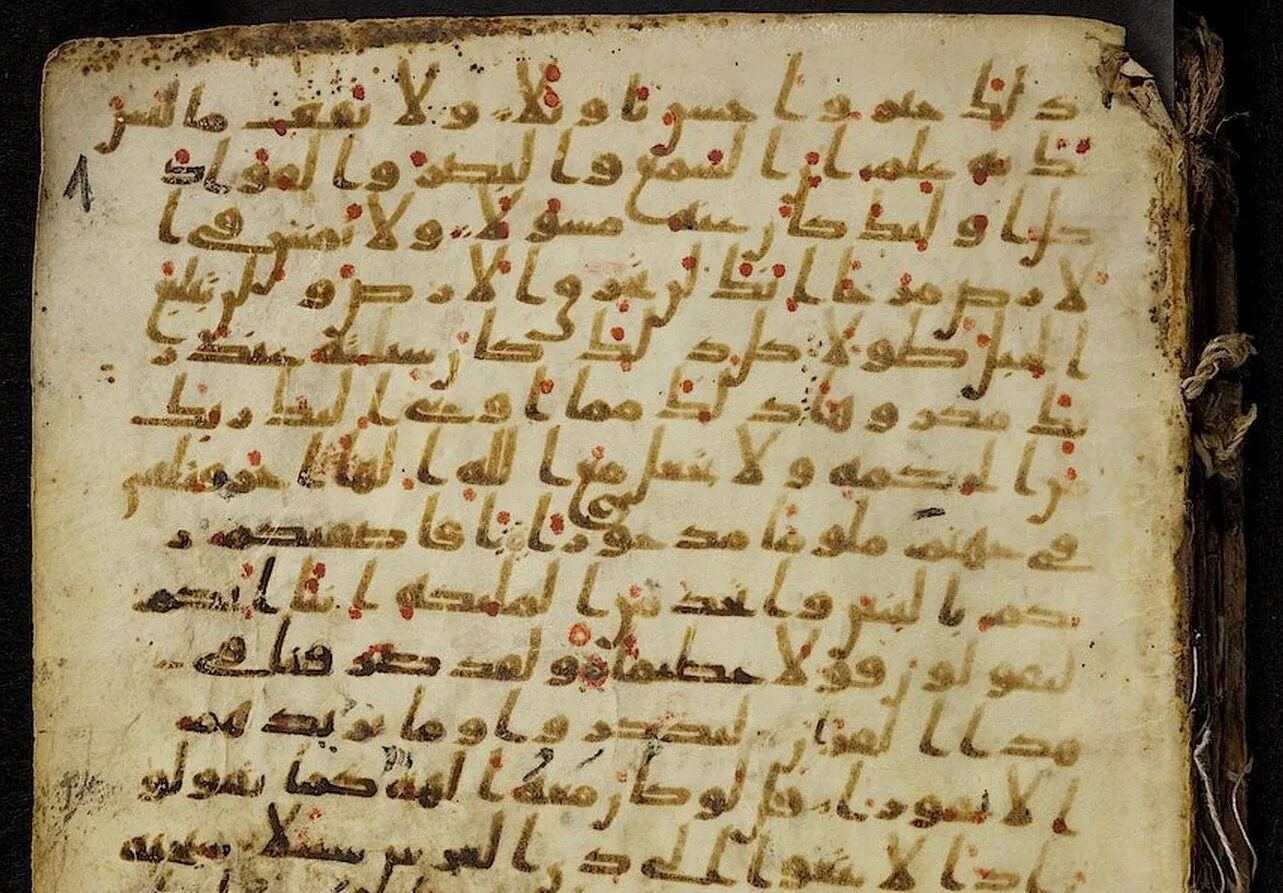 ذلك خير واحسن تاويلا ولا تقف ما ليس
لك به علم ان السمع والبصر والفواد
كل اوليك كان عنه مسولا ولا تمش في ا
لارض مرحا انك لن تخرق الارض ولن تبلغ
الجبل طولا كل ذلك كان سيئه عند ر
بك مكروها ذلك مما اوحى اليك ربك
من الحكمه ولا تجعل مع الله الها اخر فتلقى
1
في جهنم ملوما مدحورا افاصفيكم ر
بكم بالبنين واتخذ من الملئكه انثا انكم
لتقولون قولا عظيما ولقد صرفنا في
هذا القران ليذكروا وما يزيدهم
الا نفورا قل لو كان معه الهه كما يقولو
ن اذا لابتغوا الى ذي العرش سبيلا سبحنه